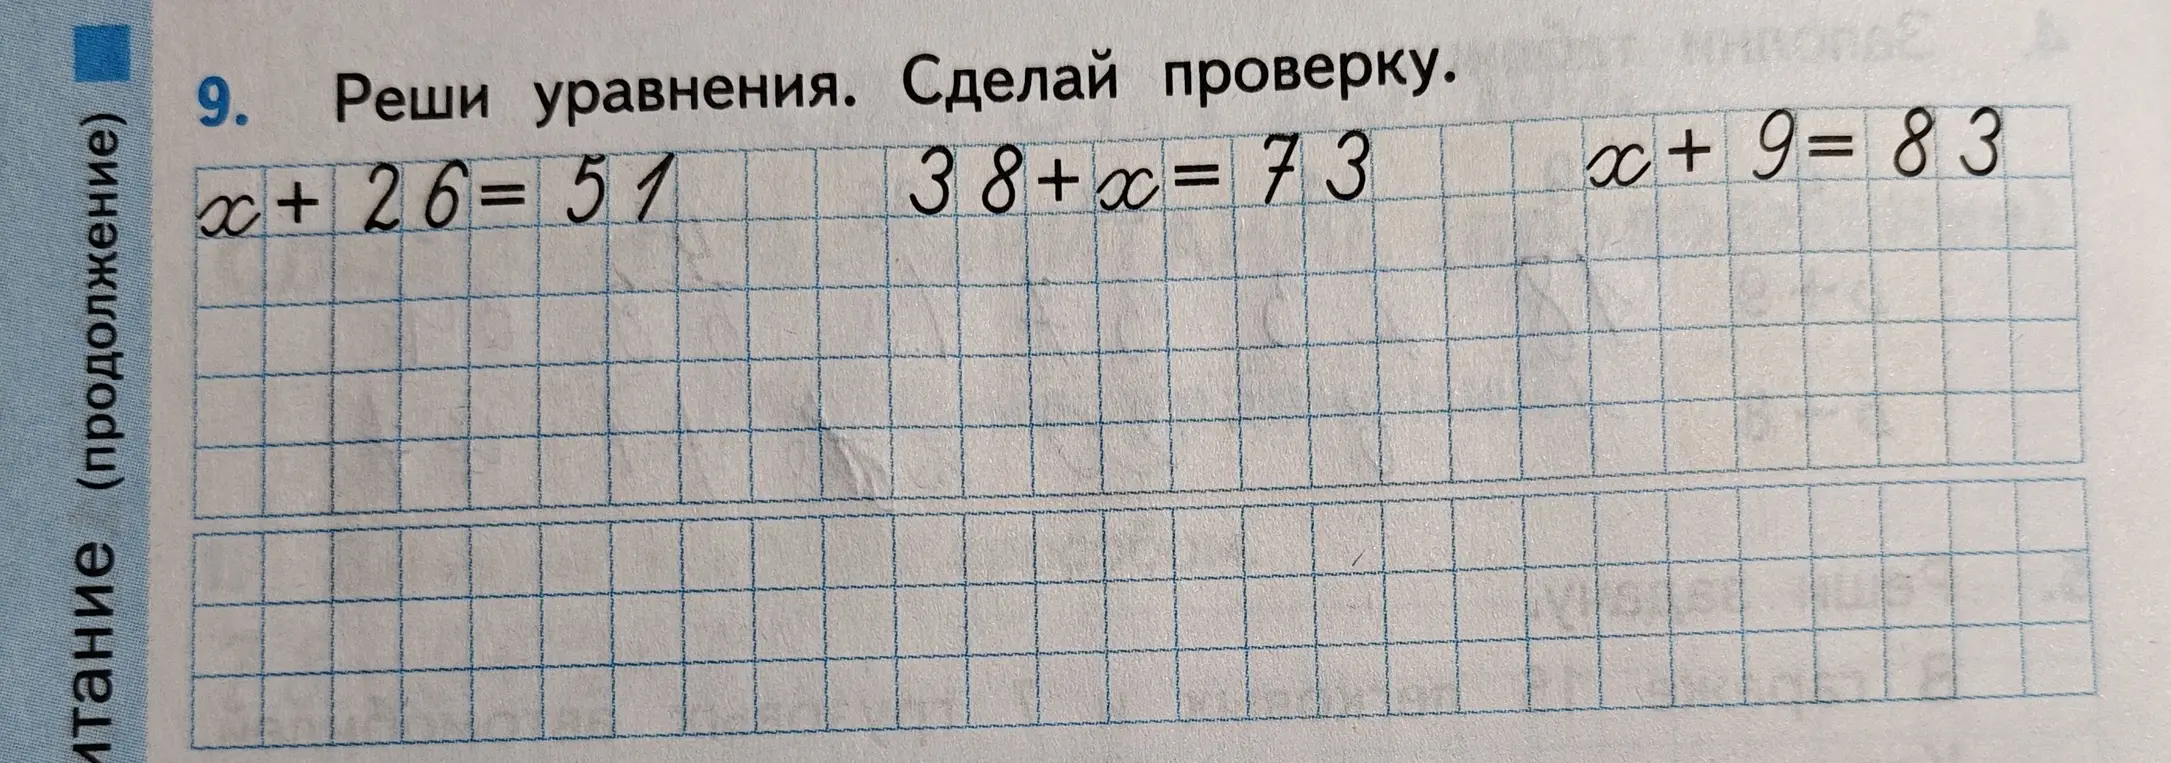 итание (продолжение)
9. Реши уравнения. Сделай проверку.
x + 26 = 51 38 + x = 73 x + 9 = 83